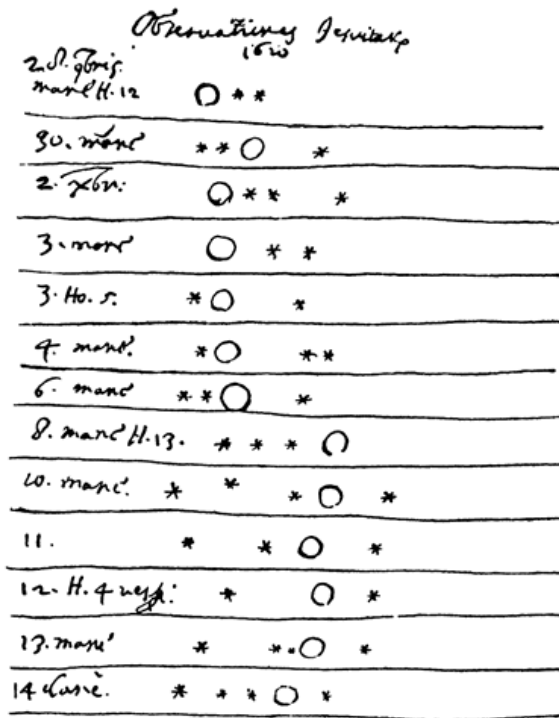 Observationes
1610
mane H. 12
30. mane
2. xbr:
3. mane
3. Ho. 5.
4. mane.
6. mane
8. mane H. 13.
10. mane.
11.
12. H. 4 vesp:
13. mane
14